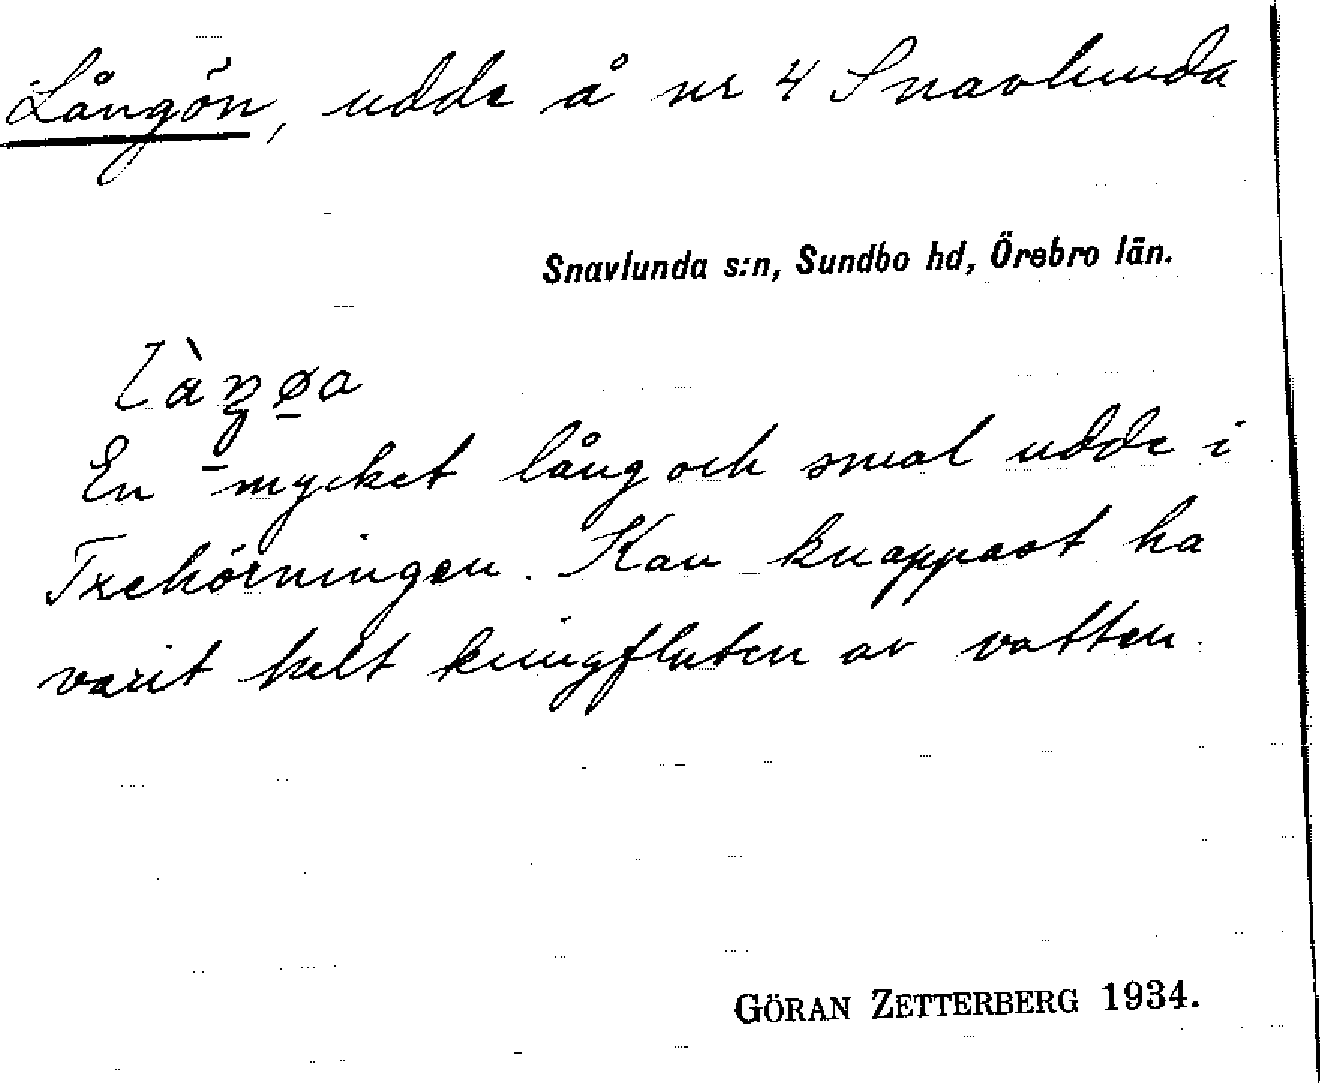 Långön, udde å nr 4 Snavlunda
Snavlunda s:n, Sundbo hd, Örebro län.
En mycket lång och smal udde i
Trehörningen. Kan knappast ha
varit helt kringfluten av vatten.
GÖRAN ZETTERBERG 1934.